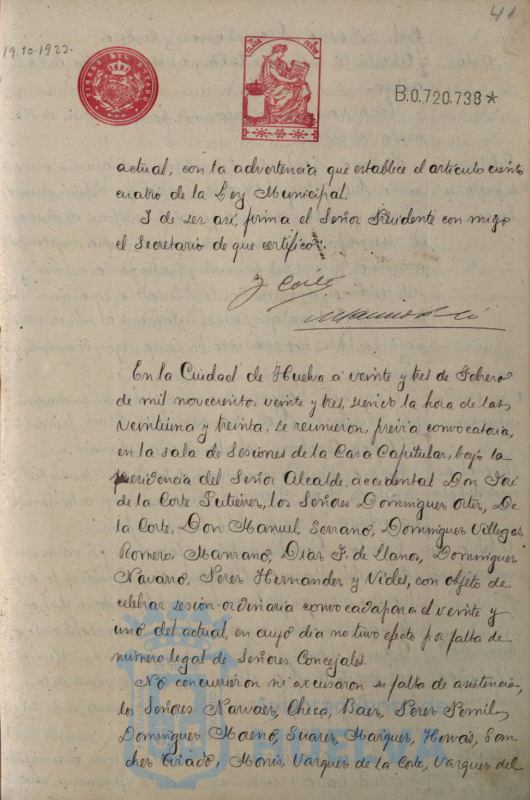 41
19.10-1923.
TIMBRE DEL ESTADO
B.0.720.738*
actual, con la advertencia que establece el artículo ciento
cuatro de la Ley Municipal.
Y de ser así, firma el Señor Presidente con migo
el Secretario de que certifico.
J Corte
En la Ciudad de Huelva á veinte y tres de Febrero
de mil novecientos veinte y tres, siendo la hora de las
veintiuna y treinta, se reunieron, previa convocatoria,
en la sala de Sesiones de la Casa Capitular, bajo la
presidencia del Señor Alcalde accidental Don José
de la Corte Gutierrez, los Señores Dominguez Ortiz, De
la Corte, Don Manuel Serrano, Dominguez Villegas,
Romero, Manzano, Diaz F. de Llanos, Dominguez
Navarro, Perez Hernandez y Vides, con objeto de
celebrar sesión ordinaria convocada para el veinte y
uno del actual, en cuyo día no tuvo efecto por falta de
número legal de Señores Concejales.
No concurrieron ni excusaron su falta de asistencia
los Señores Narvaez, Checa, Baez, Perez
Dominguez Moreno, Suarez, Marquez, Hervás, San
chez Oviado, Monis, Vazquez de la Corte, Vazquez del
HUELVA